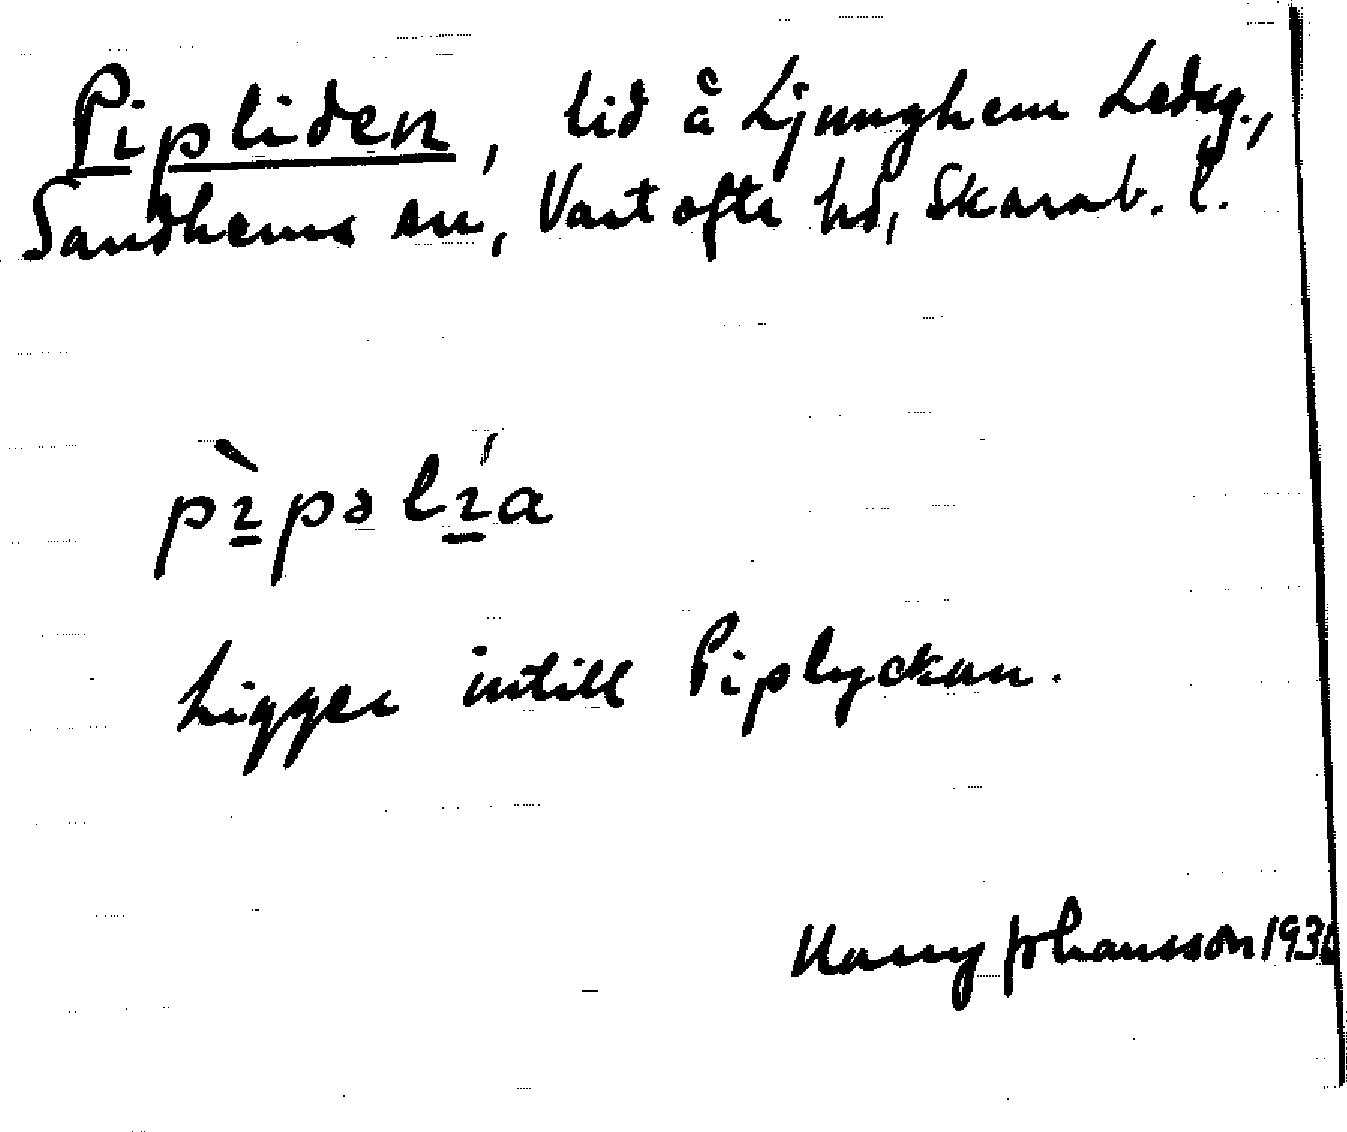 Pipliden, lid å Ljunghem Ledsg.,
Sandhems sn, Vartofta hd, Skarab. l.
pɪ̀pəlɪ́a
Ligger intill Piplyckan.
Harry Johansson 1930